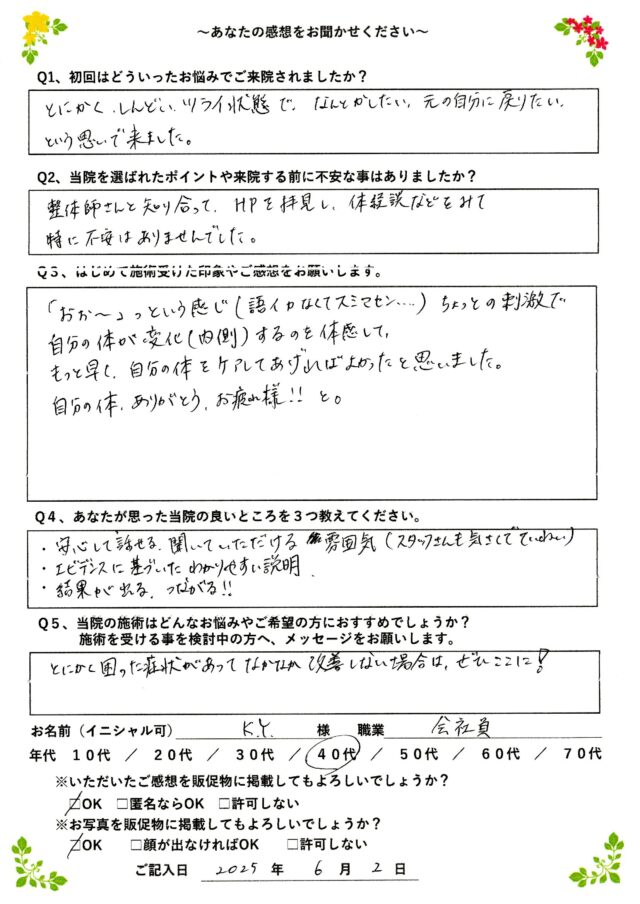 ～あなたの感想をお聞かせください～
Q1、初回はどういったお悩みでご来院されましたか？
とにかく、しんどい、ツライ状態で、なんとかしたい、元の自分に戻りたい、
という思いで来ました。
Q2、当院を選ばれたポイントや来院する前に不安な事はありましたか？
整体師さんと知り合って、HPを拝見し、体験談などをみて
特に不安はありませんでした。
Q3、はじめて施術受けた印象やご感想をお願いします。
「おぉ～」っという感じ(語イ力なくてスミマセン....)ちょっとの刺激で
自分の体が変化(内側)するのを体感して、
もっと早く、自分の体をケアしてあげればよかったと思いました。
自分の体、ありがとう、お疲れ様!! と。
Q４、あなたが思った当院の良いところを３つ教えてください。
・安心して話せる、聞いていただける 雰囲気(スタッフさんも気さくでていねい)
・エビデンスに基づいたわかりやすい説明
・結果が出る、つながる!!
Q５、当院の施術はどんなお悩みやご希望の方におすすめでしょうか？
施術を受ける事を検討中の方へ、メッセージをお願いします。
とにかく困った症状があってなかなか改善しない場合は、ぜひここに!
お名前（イニシャル可） K.Y. 様 職業 会社員
年代 １０代 ／ ２０代 ／ ３０代 ／ ４０代 ／ ５０代 ／ ６０代 ／ ７０代
※いただいたご感想を販促物に掲載してもよろしいでしょうか？
☑OK □匿名ならOK □許可しない
※お写真を販促物に掲載してもよろしいでしょうか？
☑OK □顔が出なければOK □許可しない
ご記入日 2025 年 6 月 2 日